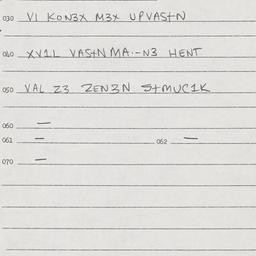 030 VI KON3X M3X UPVAS+N
040 XV1L VAS+N MA.-N3 HENT
050 VAL Z3 ZEN3N S+MUC1K
060 —
061 — 062 —
070 —